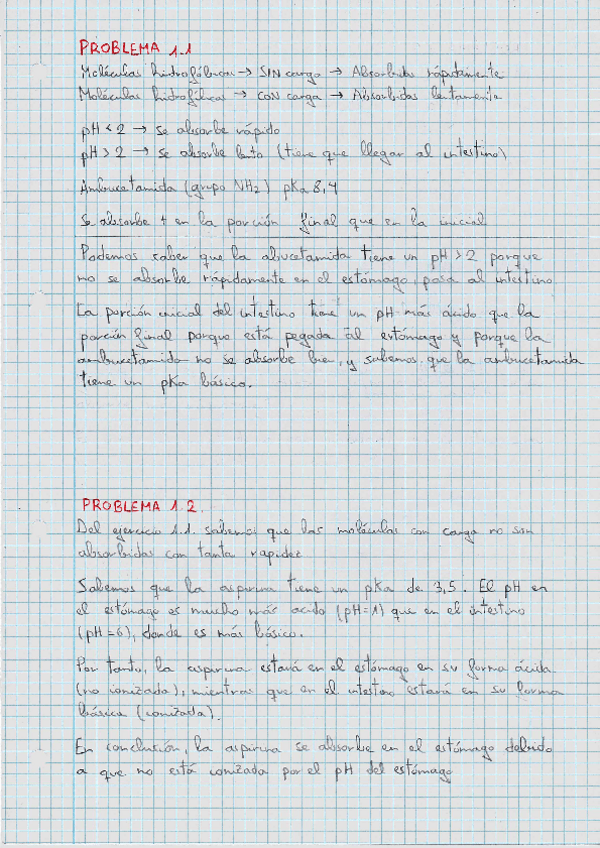 PROBLEMA 1.1
Moléculas hidrofóbicas → SIN carga → Absorbidas rápidamente
Moléculas hidrofílicas → CON carga → Absorbidas lentamente
pH < 2 → Se absorbe rápido
pH > 2 → Se absorbe lento (tiene que llegar al intestino)
Ambucetamida (grupo NH2) pKa 8,4
Se absorbe + en la porción final que en la inicial
Podemos saber que la abucetamida tiene un pH > 2 porque
no se absorbe rápidamente en el estómago, pasa al intestino
La porción inicial del intestino tiene un pH más ácido que la
porción final porque está pegada al estómago y porque la
ambucetamida no se absorbe bien, y sabemos que la ambucetamida
tiene un pKa básico.
PROBLEMA 1.2.
Del ejercicio 1.1. sabemos que las moléculas con carga no son
absorbidas con tanta rapidez
Sabemos que la aspirina tiene un pKa de 3,5. El pH en
el estómago es mucho más ácido (pH=1) que en el intestino
(pH=6), donde es más básico.
Por tanto, la aspirina estará en el estómago en su forma ácida
(no ionizada), mientras que en el intestino estará en su forma
básica (ionizada).
En conclusión, la aspirina se absorbe en el estómago debido
a que no está ionizada por el pH del estómago